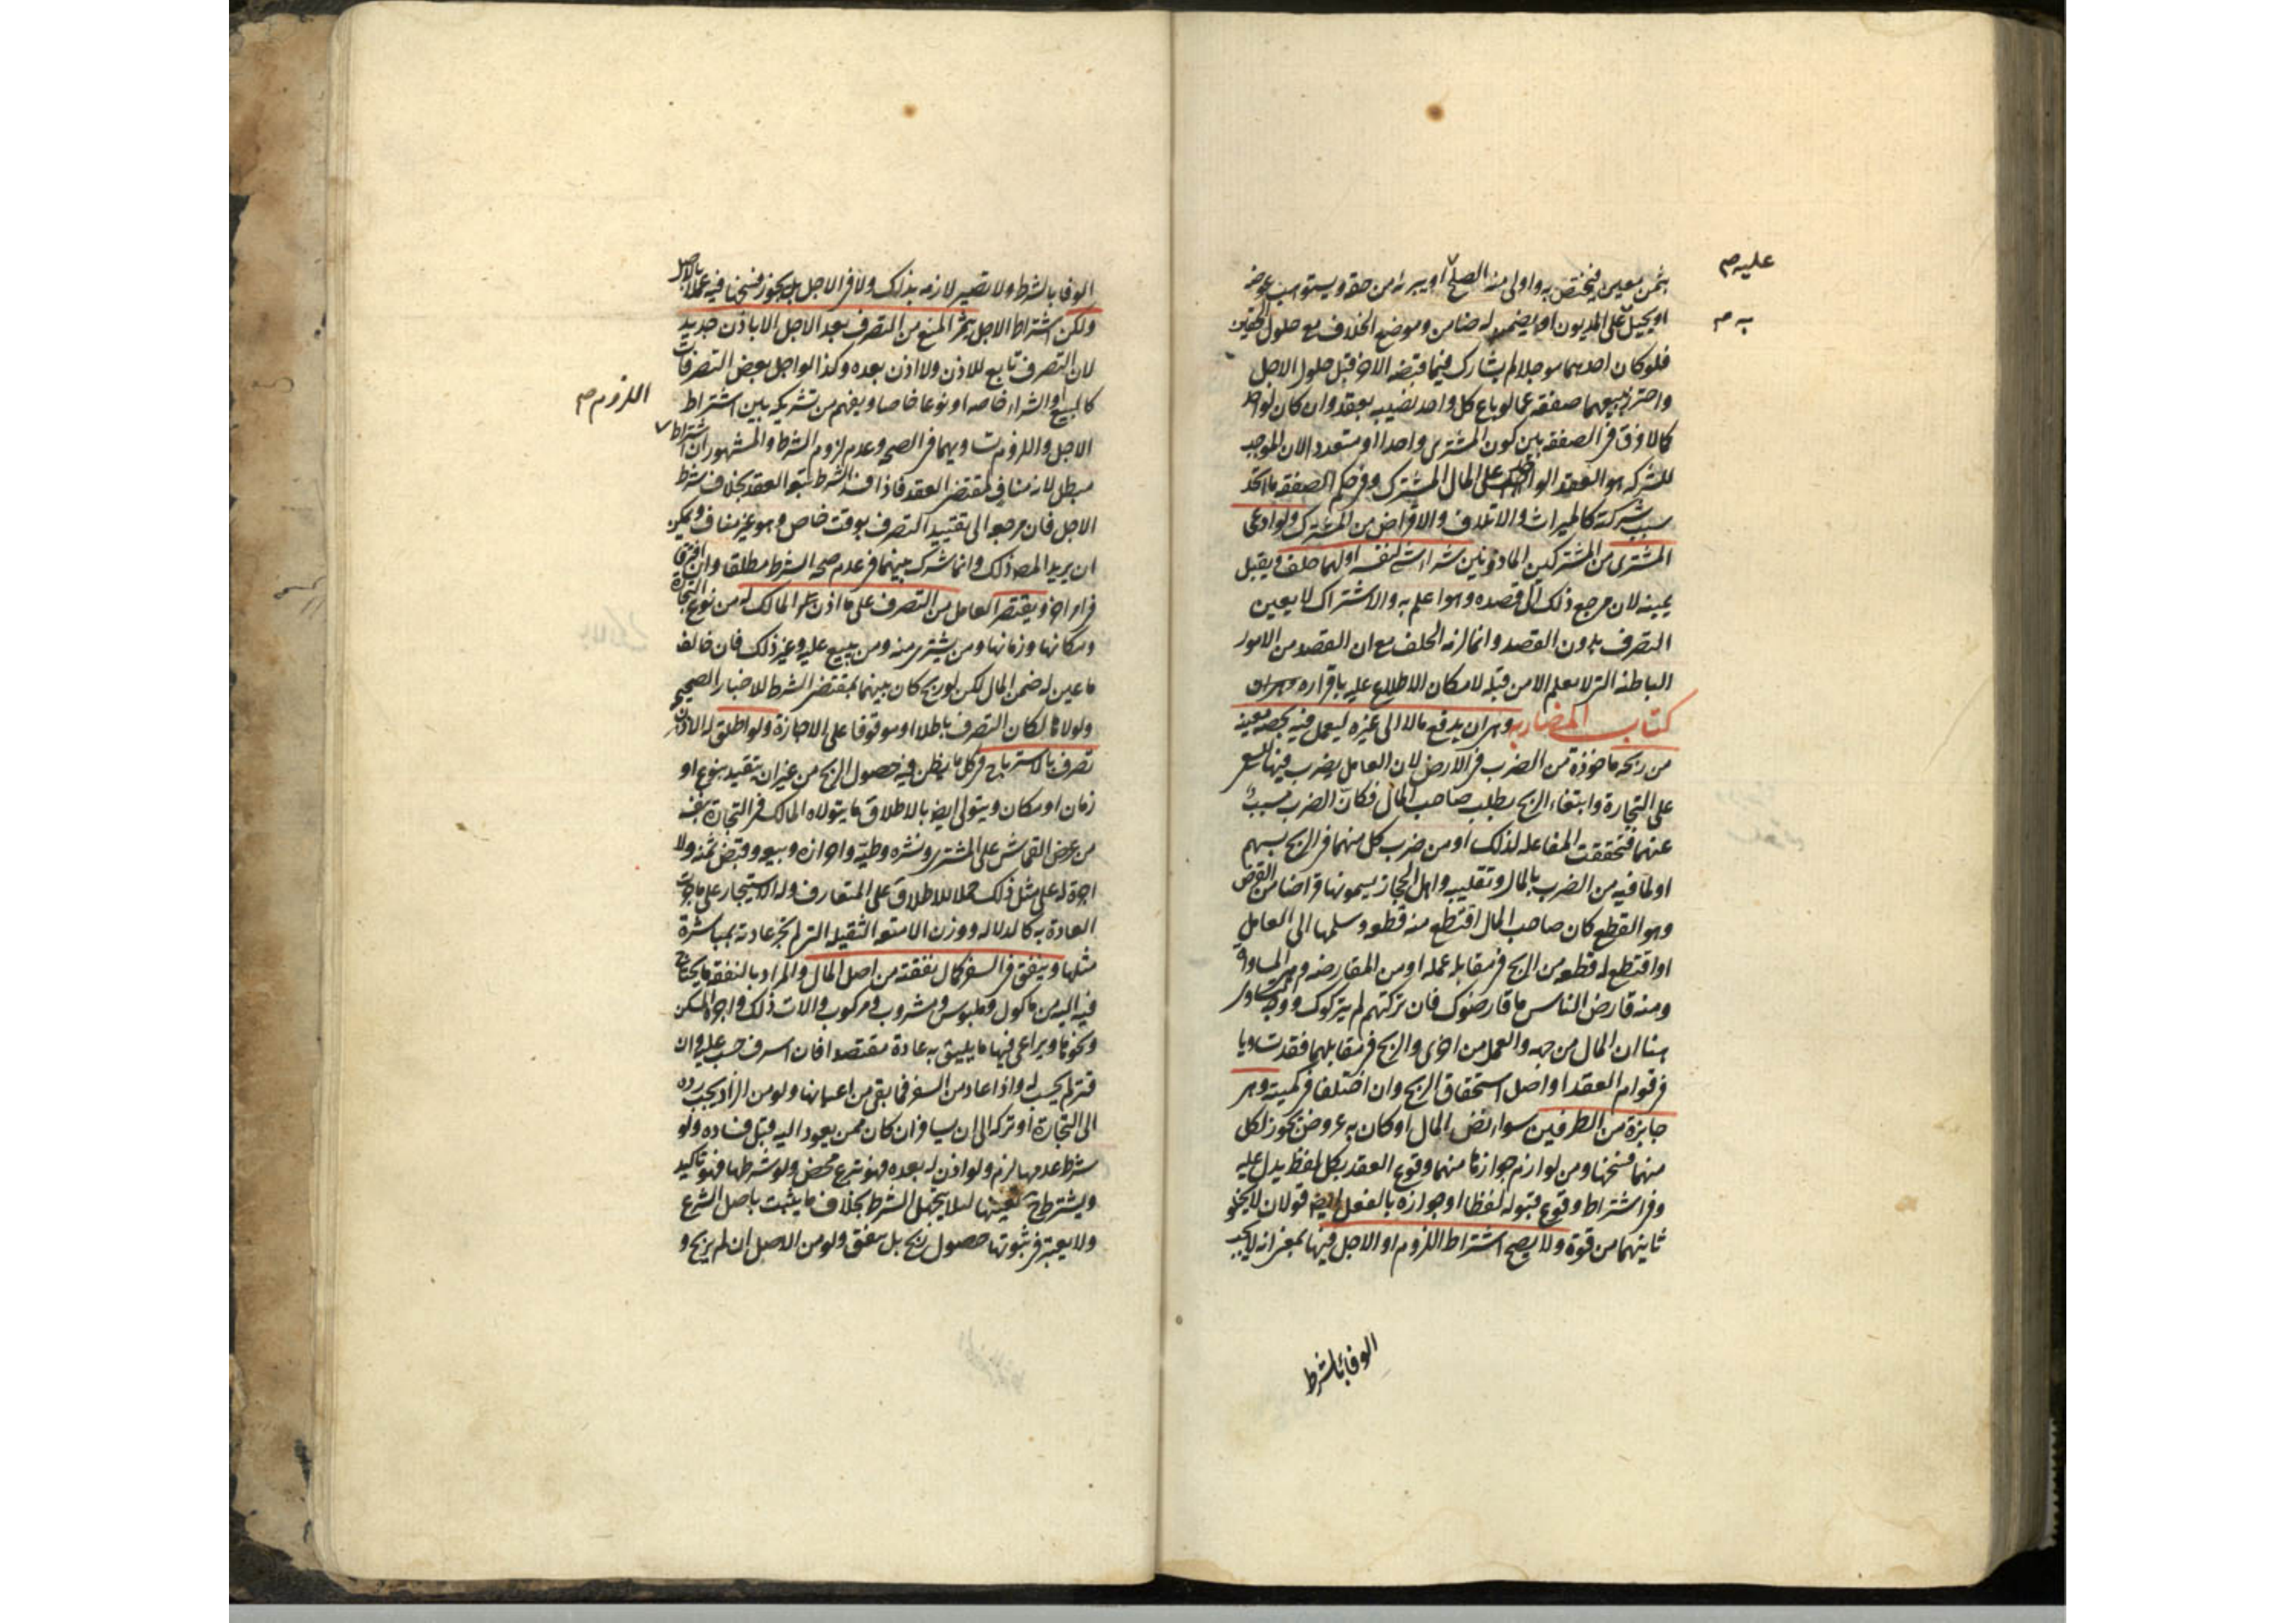 عليه م
به م
بثمن معين فيختص به واولى منه الصلح او يبرئه من حقه ويستوهب عوضه
او يحيل على المديون او يضمن له ضامن وموضع الخلاف مع حلول الحقين
فلو كان احدهما موجلا لم يشارك فيما قبضه الاخر قبل حلول الاجل
واحترز ببيعهما صفقه عما لو باع كل واحد نصيبه بعقد وان كان لواحد
كما لا فرق فى الصفقه بين كون المشترى واحدا او متعددا لان الموجب
للشركه هو العقد الواحد على المال المشترك وفى حكم الصفقه ما اتحد
سبب شركته كالميراث والاتلاف والاقراض من المشترك ولو ادعى
المشترى من المشتركين الماذونين شراء شئ لنفسه او لهما حلف ويقبل
بيمينه لان مرجع ذلك الى قصده وهو اعلم به والاشتراك لا يعين
التصرف بدون القصد وانما لزمه الحلف مع ان القصد من الامور
الباطنه التى لا يعلم الا من قبله لامكان الاطلاع عليه باقراره
كتاب المضاربه وهى ان يدفع مالا الى غيره ليعمل فيه بحصه معينه
من ربحه ماخوذة من الضرب فى الارض لان العامل يضرب فيها للسعى
على التجارة وابتغاء الربح بطلب صاحب المال فكان الضرب مسبب
عنهما فتحققت المفاعله لذلك او من ضرب كل منهما فى الربح بسهم
او لما فيه من الضرب بالمال وتقليبه واهل الحجاز يسمونها قراضا من القرض
وهو القطع كان صاحب المال اقتطع منه قطعه وسلمها الى العامل
او اقتطع له قطعه من الربح فى مقابله عمله او من المقارضه وهى المساواة
ومنه قارض الناس ما قارضوك فان تركتهم لم يتركوك ووجه التساوى
هنا ان المال من جهه والعمل من اخرى والربح فى مقابلهما فقد تساويا
فى قوام العقد او اصل استحقاق الربح وان اختلفا فى كميته وهى
جايزة من الطرفين سواء نض المال او كان به عروض يجوز لكل
منهما فسخها ومن لوازم جوازها منهما وقوع العقد بكل لفظ يدل عليه
وفى اشتراط وقوع قبوله لفظا او جوازه بالفعل ايضا قولان لا يخلو
ثانيهما من قوة ولا يصح اشتراط اللزوم او الاجل فيها بمعنى انه لا يجب
الوفا بالشرط
الوفا بالشرط ولا تصير لازمه بذلك ولا فى الاجل بل يجوز فسخها فيه عملا بالاصل
ولكن اشتراط الاجل يثمر المنع من التصرف بعد الاجل الا باذن جديد
لان التصرف تابع للاذن ولا اذن بعده وكذا لو اجل بعض التصرفات
كالبيع او الشراء خاصه او نوعا خاصا ويفهم من تشريكه بين اشتراط
اللزوم م
الاجل واللزوم تساويهما فى الصحه وعدم لزوم الشرط والمشهور ان اشتراط
مبطل لانه مناف لمقتضى العقد فاذا فسد الشرط تبعه العقد بخلاف شرط
الاجل فان مرجعه الى تقييد التصرف بوقت خاص وهو غير مناف ويمكن
ان يريد المص ذلك وانما شرك بينهما فى عدم صحه الشرط مطلقا وان افترقا
فى امر اخر ويقتصر العامل من التصرف على ما اذن المالك له من نوع التجارة
ومكانها وزمانها ومن يشترى منه ومن يبيع عليه وغير ذلك فان خالف
ما عين له ضمن المال لكن لو ربح كان بينهما بمقتضى الشرط للاخبار الصحيحه
ولولاها لكان التصرف باطلا او موقوفا على الاجازة ولو اطلق له الاذن
تصرف بالاسترباح فى كل ما يظن فيه حصول الربح من غير ان يتقيد بنوع او
زمان او مكان ويتولى ايضا بالاطلاق ما يتولاه المالك فى التجارة بنفسه
من عرض القماش على المشترى ونشره وطيه واحرازه وبيعه وقبض ثمنه ولا
اجرة له على مثل ذلك حملا للاطلاق على المتعارف وله الاستيجار على ما جرت
العادة به كالدلاله ووزن الامتعه الثقيله التى لم يجر عادته بمباشرة
مثلها وينفق فى السفر كمال نفقته من اصل المال والمراد بالنفقه ما يحتاج
فيه اليه من ماكول وملبوس ومشروب ومركوب والات ذلك واجرة المسكن
ونحوها ويراعى فيها ما يليق به عادة مقتصدا فان اسرف حسب عليه وان
قتر لم يحسب له واذا عاد من السفر فما بقى من اعيانها ولو من الزاد يجب رده
الى التجارة او تركه الى ان يسافر ان كان ممن يعود اليه قبل فساده ولو
شرط عدمها لزم ولو اذن له بعده فهو تبرع محض ولو شرطها فهو تاكيد
ويشترط ح تعيينها لئلا يتجهل الشرط بخلاف ما يثبت باصل الشرع
ولا يعتبر فى ثبوتها حصول ربح بل ينفق ولو من الاصل ان لم يربح و